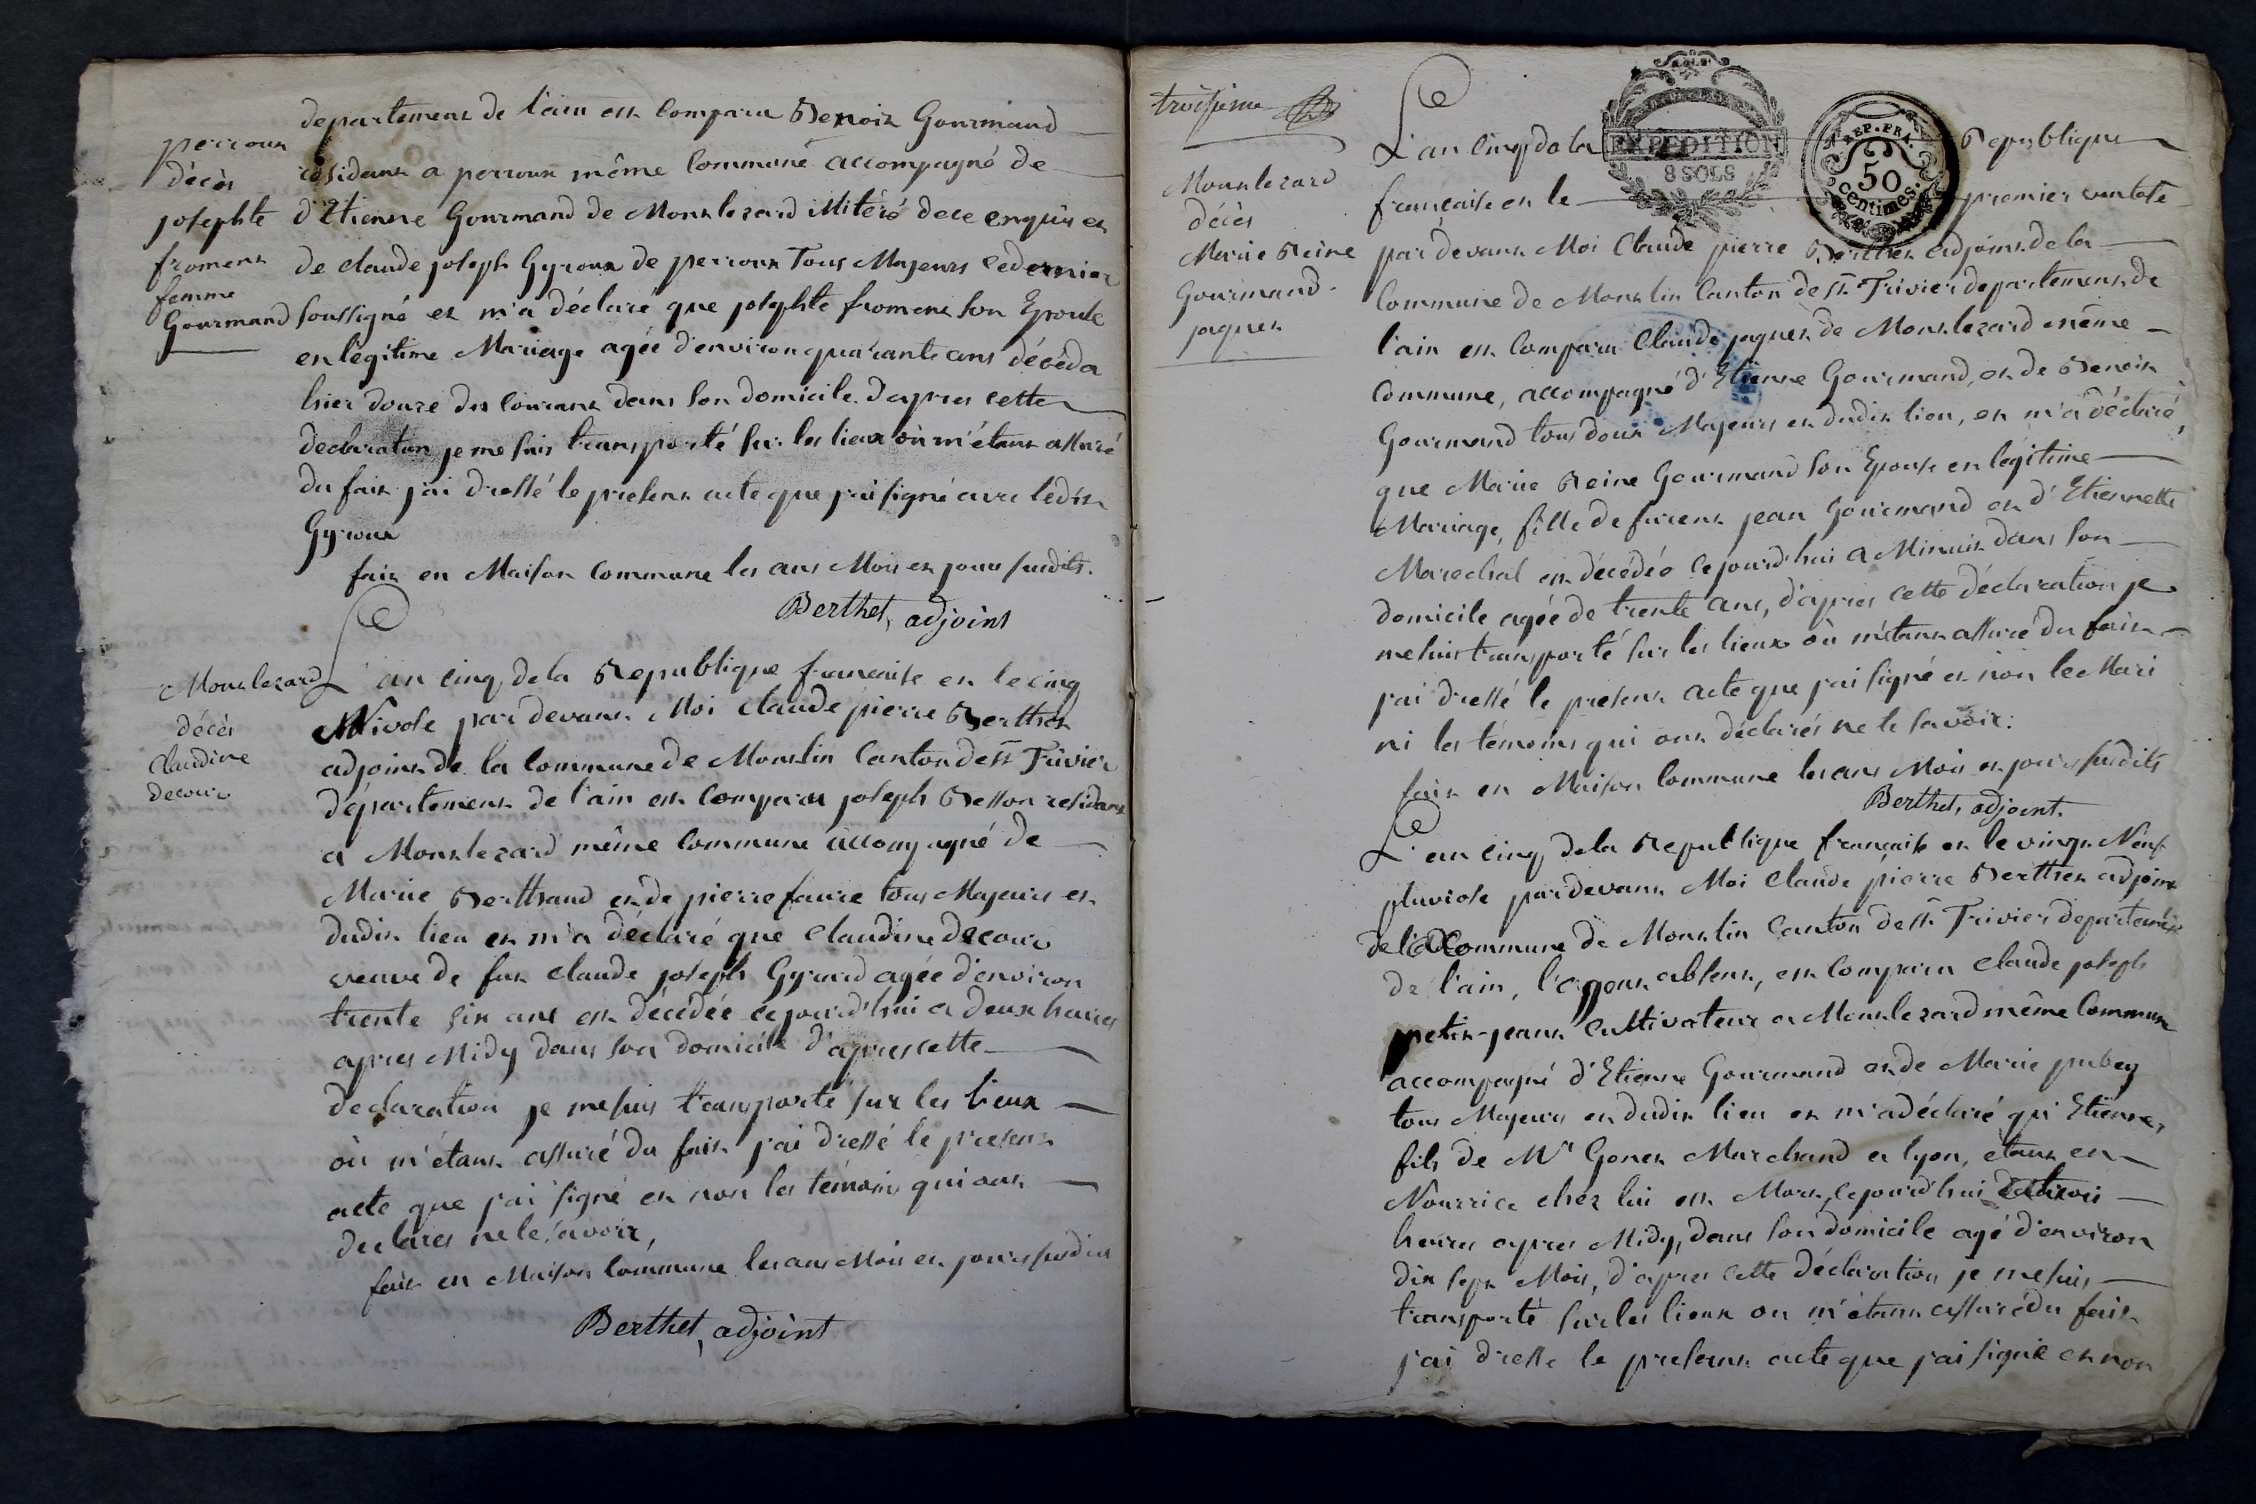 departement de l'ain est comparu Benoit Gourmand
residant a perroux même commune accompagné de
d'Etienne Gourmand de Montlezard illitéré de ce enquis et
de claude joseph Gyroux de perroux Tous Majeurs ce dernier
soussigné et m'a déclaré que josephte froment son Epouse
en légitime Mariage agée d'environ quarante ans décéda
hier douze du courant dans son domicile d'apres cette
declaration je me suis transporté sur les lieux où m'étant assuré
du fait j'ai dressé le present acte que j'ai signé avec ledit
Gyroux
fait en Maison commune les ans Mois et jour susdits.
Berthet, adjoint
perroux
décès
josephte
froment
femme
Gourmand
L'an cinq de la Republique francaise et le cinq
Nivose par devant Moi claude pierre Berthet
adjoint de la commune de Montlin canton de St Trivier
département de l'ain est comparu joseph Besson residant
a Montlezard même commune accompagné de
Marie Berthand et de pierre favre tous Majeurs et
dudit lieu et m'a déclaré que claudine decour
veuve de fut claude joseph Gyrard agée d'environ
trente six ans est décédée cejourd'hui a deux heures
apres Midy dans son domicile d'apres cette
declaration je me suis transporté sur les lieux
où m'étant assuré du fait j'ai dressé le present
acte que j'ai signé et non les témoins qui ont
declarés ne le savoir,
fait en Maison commune les ans Mois et jours susdits
Berthet, adjoint
Montlezard
décès
claudine
decour
troisieme
EXPEDITION
8 SOLS
REP. FRA.
50
centimes.
L'an cinq de la Republique
francaise et le premier ventose
par devant Moi Claude pierre Berthet adjoint de la
commune de Montlin canton de St Trivier departement de
l'ain est comparu Claude jaquet de Montlezard même
commune, accompagné d'Etienne Gourmand, et de Benoit
Gourmand tous deux Majeurs et dudit lieu, et m'a déclaré,
que Marie Reine Gourmand son Epouse en légitime
Mariage, fille de furent jean Gourmand et d'Etiennette
Marechal est décédée cejourd'hui a Minuit dans son
domicile agée de trente ans, d'apres cette déclaration je
me suis transporté sur les lieux où m'étant assuré du fait
j'ai dressé le present acte que j'ai signé et non le Mari
ni les témoins qui ont déclarés ne le savoir:
fait en Maison commune les ans Mois et jours susdits
Berthet, adjoint.
Montlezard
décès
Marie Reine
Gourmand
jaquet
L'an cinq de la Republique francaise et le vingt Neuf
pluviose par devant Moi claude pierre Berthet adjoint
de la commune de Montlin canton de St Trivier departement
de l'ain, l'agent absent, est comparu claude joseph
petit-jeant cultivateur a Montlezard même commune
accompagné d'Etienne Gourmand et de Marie pubey
tous Majeurs et dudit lieu et m'a déclaré qu'Etienne,
fils de Mr Gonet Marchand a lyon, étant en
Nourrice chez lui est Mort, cejourd'hui a trois
heures apres Midy, dans son domicile agé d'environ
dix sept Mois, d'apres cette déclaration je me suis
transporté sur les lieux ou m'étant assuré du fait
j'ai dressé le present acte que j'ai signé et non